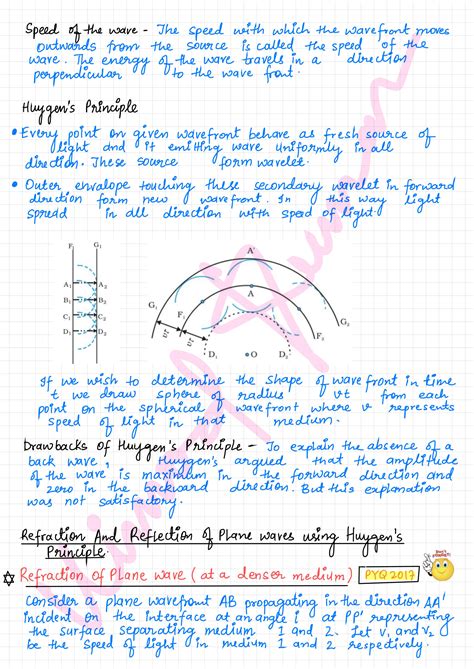 Speed of the wave - The speed with which the wavefront moves
outwards from the source is called the speed of the
wave. The energy of the wave travels in a direction
perpendicular to the wave front.
Huygen's Principle
• Every point on given wavefront behave as fresh source of
light and it emitting wave uniformly in all
direction. These source form wavelet.
• Outer envalope touching these secondary wavelet in forward
direction form new wavefront. In this way light
spread in all direction with speed of light
F₁ G₁
A₁ A₂
B₁ B₂
C₁ C₂
D₁ D₂
A'
A
G₁
F₁
F₂
G₂
D₁ O D₂
If we wish to determine the shape of wavefront in time
t we draw sphere of radius vt from each
point on the spherical wavefront where v represents
speed of light in that medium.
Drawbacks of Huygen's Principle - To explain the absence of a
back wave, Huygen's argued that the amplitude
of the wave is maximum in the forward direction and
zero in the backward direction. But this explanation
was not satisfactory.
Refraction And Reflection of Plane waves using Huygen's
Principle.
Refraction of Plane wave (at a denser medium) PYQ 2017
Consider a plane wavefront AB propagating in the direction AA'
incident on the interface at an angle i at PP' representing
the surface separating medium 1 and 2. Let v₁ and v₂
be the speed of light in medium 1 and 2 respectively.